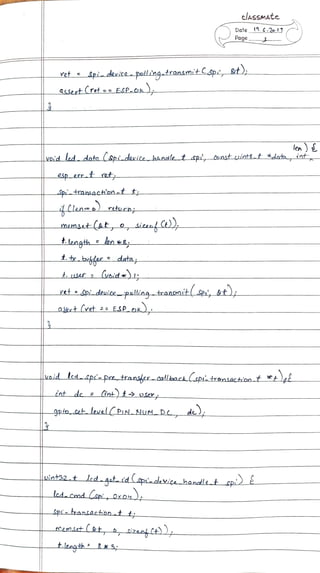 classmate
Date 19.6.2019
Page 3
ret = spi_device_polling_transmit (spi, &t);
assert (ret == ESP_OK);
}
void lcd_data (spi_device_handle_t spi, const uint8_t *data, int len) {
esp_err_t ret;
spi_transaction_t t;
if (len==0) return;
memset (&t, 0, sizeof (t));
t.length = len*8;
t.tx_buffer = data;
t.user = (void*) 1;
ret = spi_device_polling_transmit (spi, &t);
assert (ret == ESP_OK);
}
void lcd_spi_pre_transfer_callback (spi_transaction_t *t) {
int dc = (int) t->user;
gpio_set_level (PIN_NUM_DC, dc);
}
uint32_t lcd_get_id (spi_device_handle_t spi) {
lcd_cmd (spi, 0x04);
spi_transaction_t t;
memset (&t, 0, sizeof (t));
t.length = 8*3;